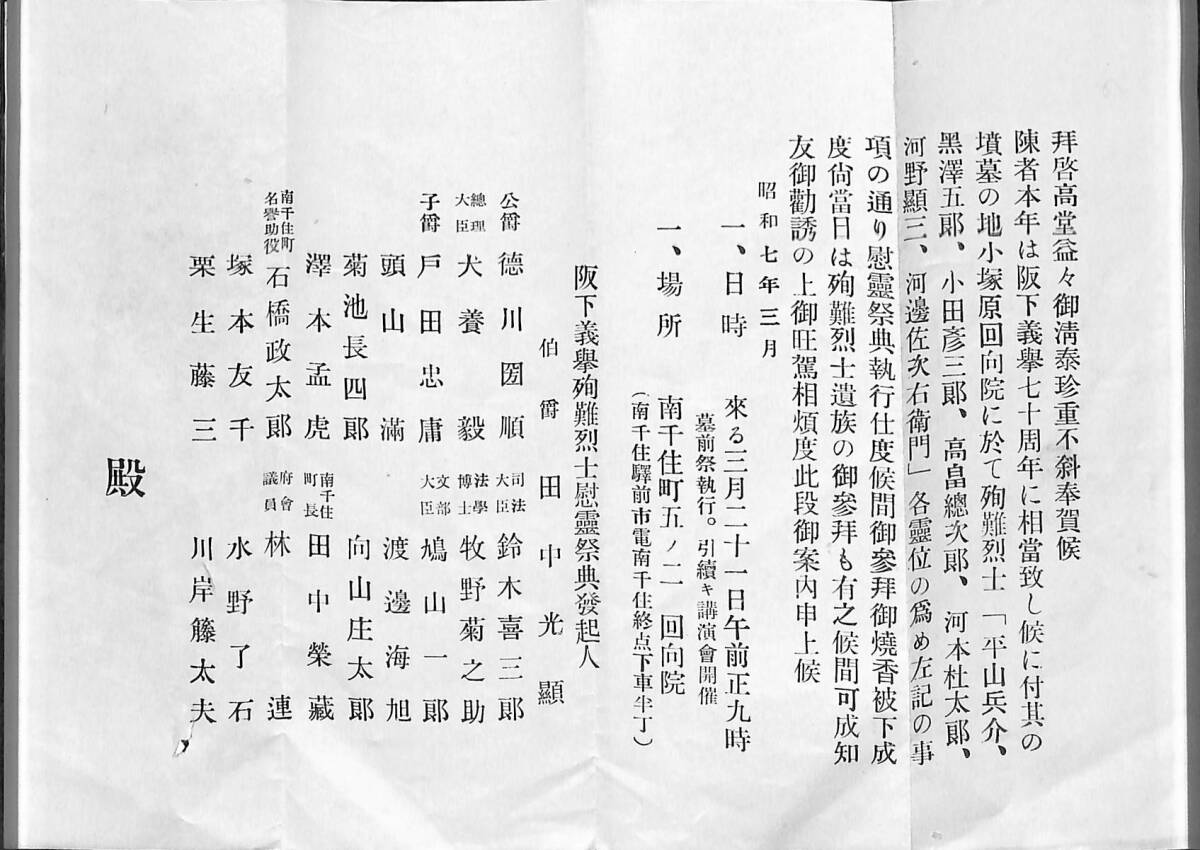 拜啓高堂益々御淸泰珍重不斜奉賀候
陳者本年は阪下義擧七十周年に相當致し候に付其の
墳墓の地小塚原回向院に於て殉難烈士「平山兵介、
黑澤五郞、小田彥三郞、高畠總次郞、河本杜太郞、
河野顯三、河邊佐次右衛門」各靈位の爲め左記の事
項の通り慰靈祭典執行仕度候間御參拜御燒香被下成
度尙當日は殉難烈士遺族の御參拜も有之候間可成知
友御勸誘の上御旺駕相煩度此段御案內申上候
昭和七年三月
一、日時 來る三月二十一日午前正九時
墓前祭執行。引續キ講演會開催
一、場所 南千住町五ノ二 回向院
(南千住驛前市電南千住終点下車半丁)
阪下義擧殉難烈士慰靈祭典發起人
伯爵 田中光顯
公爵 德川圀順 司法大臣 鈴木喜三郞
總理大臣 犬養毅 法學博士 牧野菊之助
子爵 戶田忠庸 文部大臣 鳩山一郞
頭山滿 渡邊海旭
菊池長四郞 向山庄太郞
澤本孟虎 南千住町長 田中榮藏
南千住町名譽助役 石橋政太郞 府會議員 林連
塚本友千 水野了石
栗生藤三 川岸籐太夫
殿